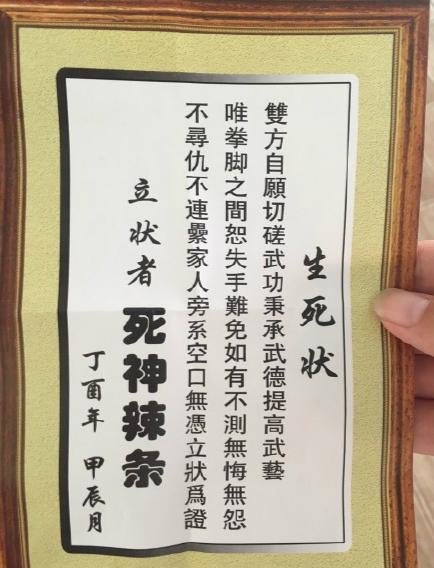 生死状
雙方自願切磋武功秉承武德提高武藝
唯拳脚之間恕失手難免如有不測無悔無怨
不尋仇不連纍家人旁系空口無憑立狀爲證
立状者 死神辣条
丁酉年 甲辰月